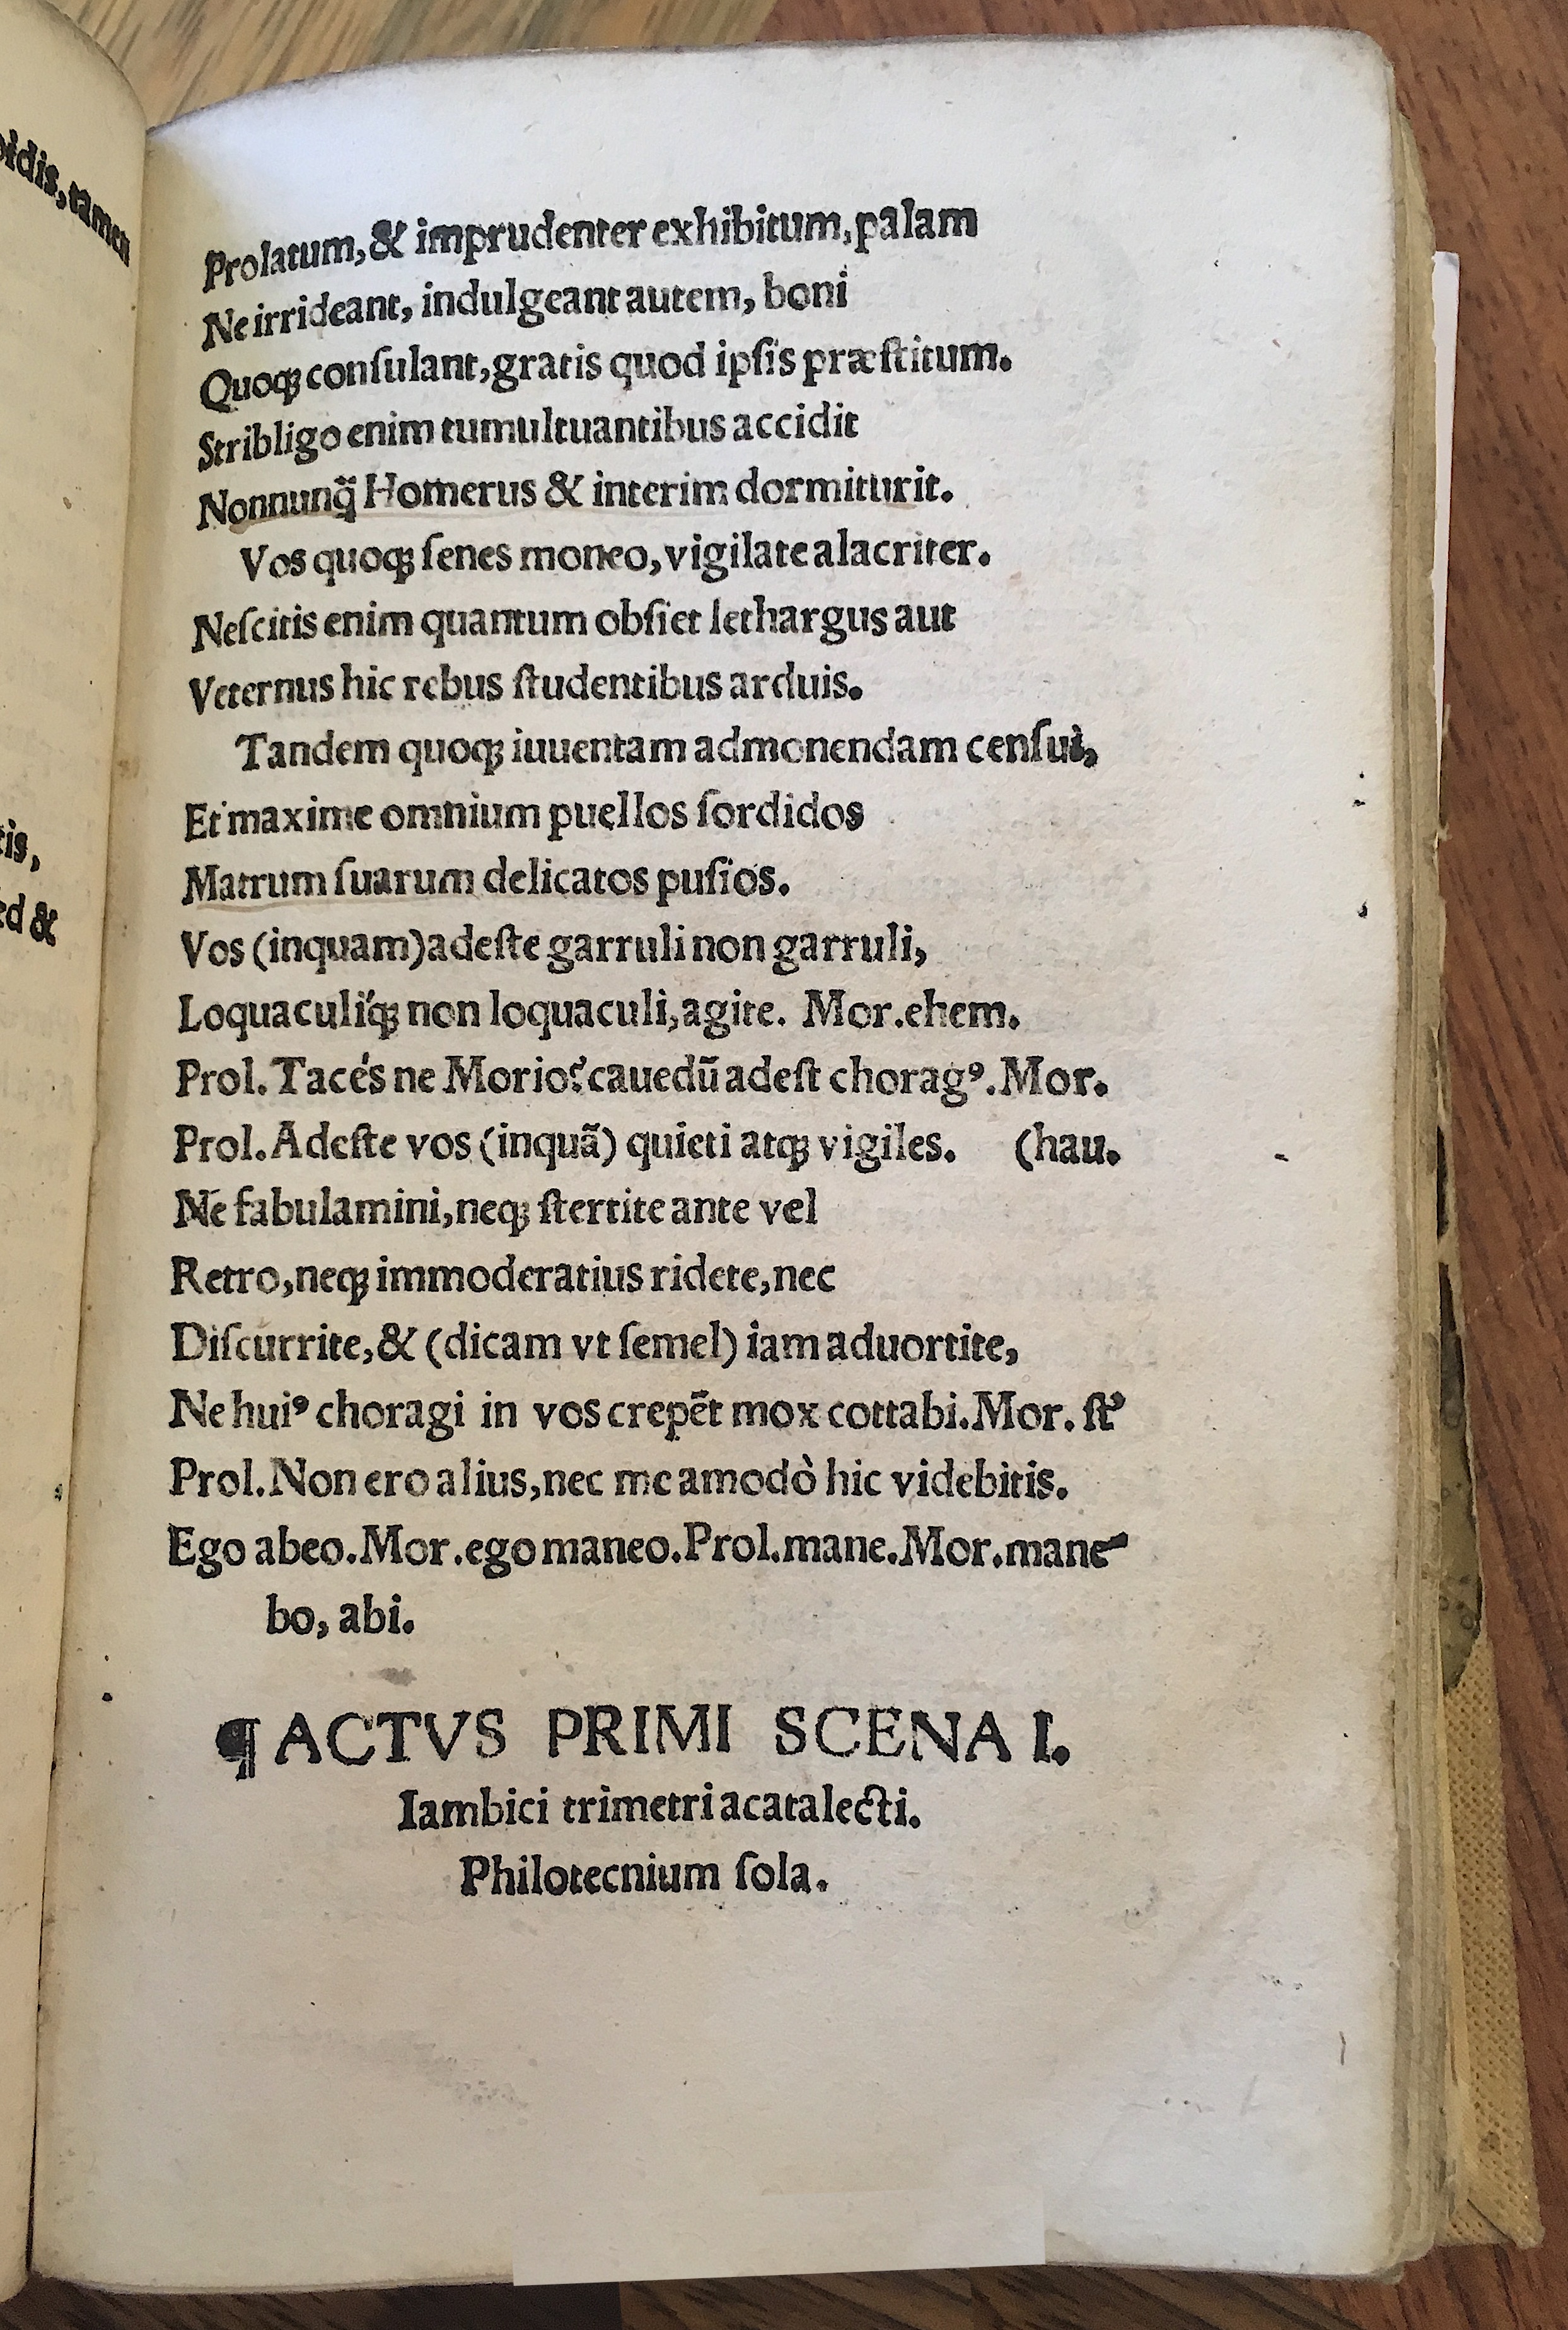 oidis, tamen
tis,
ed &
Prolatum, & imprudenter exhibitum, palam
Ne irrideant, indulgeant autem, boni
Quoqꝫ conſulant, gratis quod ipſis præſtitum.
Stribligo enim tumultuantibus accidit
Nonnunq̃ Homerus & interim dormiturit.
Vos quoqꝫ ſenes moneo, vigilate alacriter.
Neſcitis enim quantum obſiet lethargus aut
Veternus hic rebus ſtudentibus arduis.
Tandem quoqꝫ iuuentam admonendam cenſui,
Et maxime omnium puellos ſordidos
Matrum ſuarum delicatos puſios.
Vos (inquam) adeſte garruli non garruli,
Loquaculi'qꝫ non loquaculi, agite. Mor. ehem.
Prol. Tacés ne Morio? cauedũ adeſt choragꝰ. Mor.
Prol. Adeſte vos (inquã) quieti atqꝫ vigiles. (hau.
Ne fabulamini, neqꝫ ſtertite ante vel
Retro, neqꝫ immoderatius ridete, nec
Diſcurrite, & (dicam vt ſemel) iam aduortite,
Ne huiꝰ choragi in vos crepẽt mox cottabi. Mor. ſt'
Prol. Non ero alius, nec me amodò hic videbitis.
Ego abeo. Mor. ego maneo. Prol. mane. Mor. mane-
bo, abi.
¶ ACTVS PRIMI SCENA I.
Iambici trimetri acatalecti.
Philotecnium ſola.